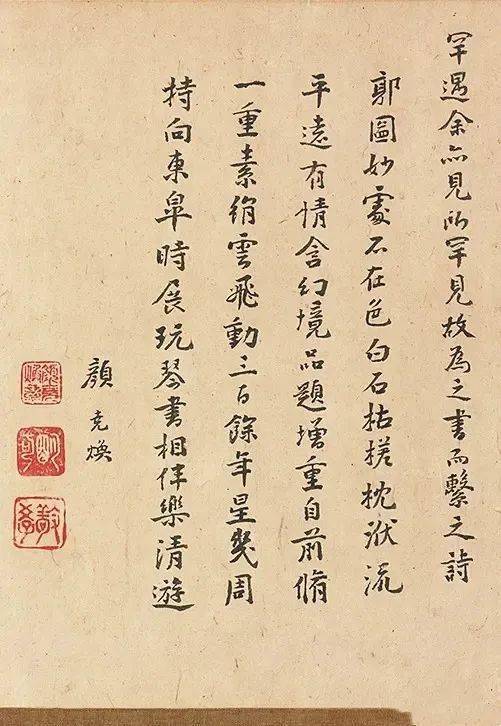 罕遇余亦見所罕見故為之書而繫之詩
郭圖妙處不在色白石枯槎枕洑流
平遠有情含幻境品題增重自前脩
一重素絹雲飛動三百餘年星幾周
持向東皐時展玩琴書相伴樂清遊
顏堯煥